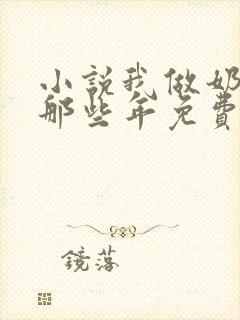 小说我做奶
那些年免費
鏡落